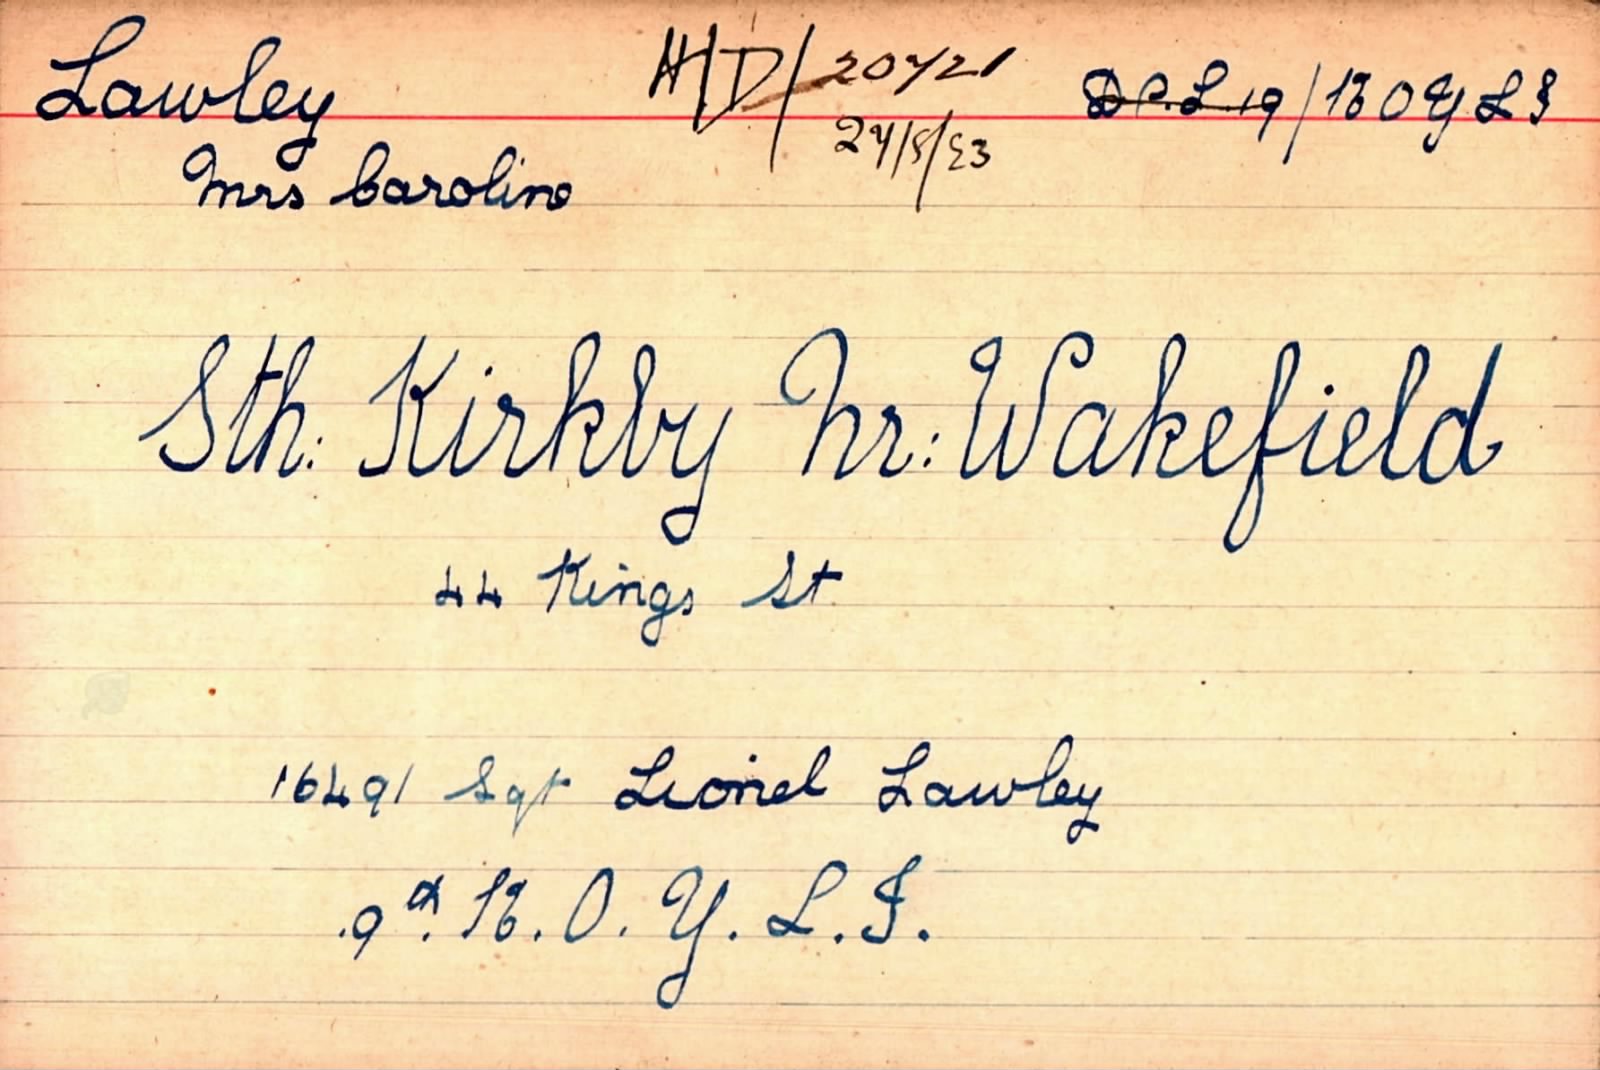 Lawley
Mrs Caroline
H/D/ 20721
24/5/23
D.P.L. 19/K O Y L I
Sth: Kirkby Nr: Wakefield
44 Kings St
16491 Sgt Lionel Lawley
9th. K. O. Y. L. I.